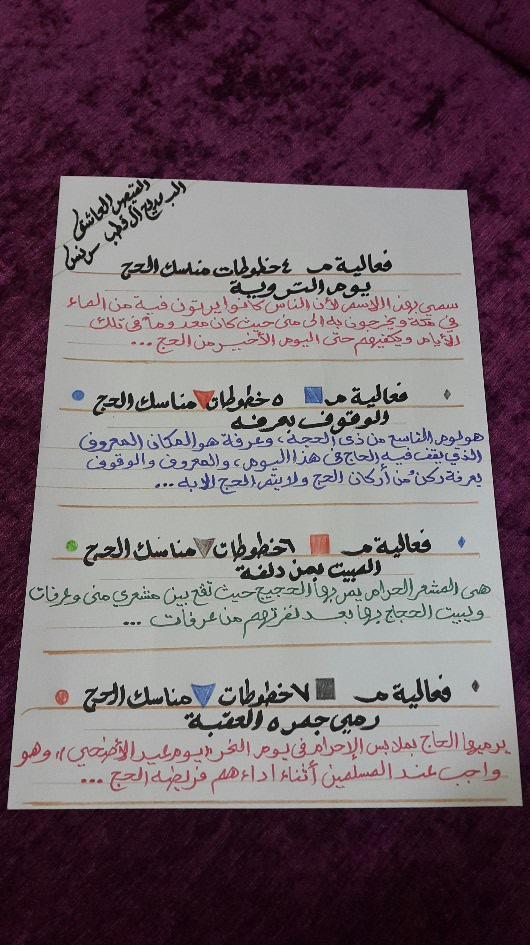 القيصر العاشق
البـ مديح آل قطب سرنس
فعالية مـ ٤ خطوطات مناسك الحج
يوم التروية
سمي بهذا الاسم لأن الناس كانوا يرتون فية من الماء
في مكة ويخرجون به الى منى حيث كان معدوماً في ذلك
الأيام ويكفيهم حتى اليوم الأخير من الحج ...
فعالية مـ ٥ خطوطات مناسك الحج
الوقوف بعرفه
هو ليوم التاسع من ذى الحجة ، وعرفة هو المكان المعروف
الذي يقف فيه الحاج في هذا اليوم ، والمعروف والوقوف
بعرفة ركنٌ من أركان الحج ولا يتم الحج الا به ...
فعالية مـ ٦ خطوطات مناسك الحج
المبيت بمن دلفة
هى المشعر الحرام يمر بها الحجيج حيث تقع بين مشعري منى وعرفات
ويبيت الحجاج بها بعد نفرتهم من عرفات ...
فعالية مـ ٧ خطوطات مناسك الحج
رمي جمره العقبة
يرميها الحاج بملابس الإحرام في يوم النحر "يوم عيد الأضحي" ، وهو
واجب عند المسلمين أثناء اداءهم فريضه الحج ...